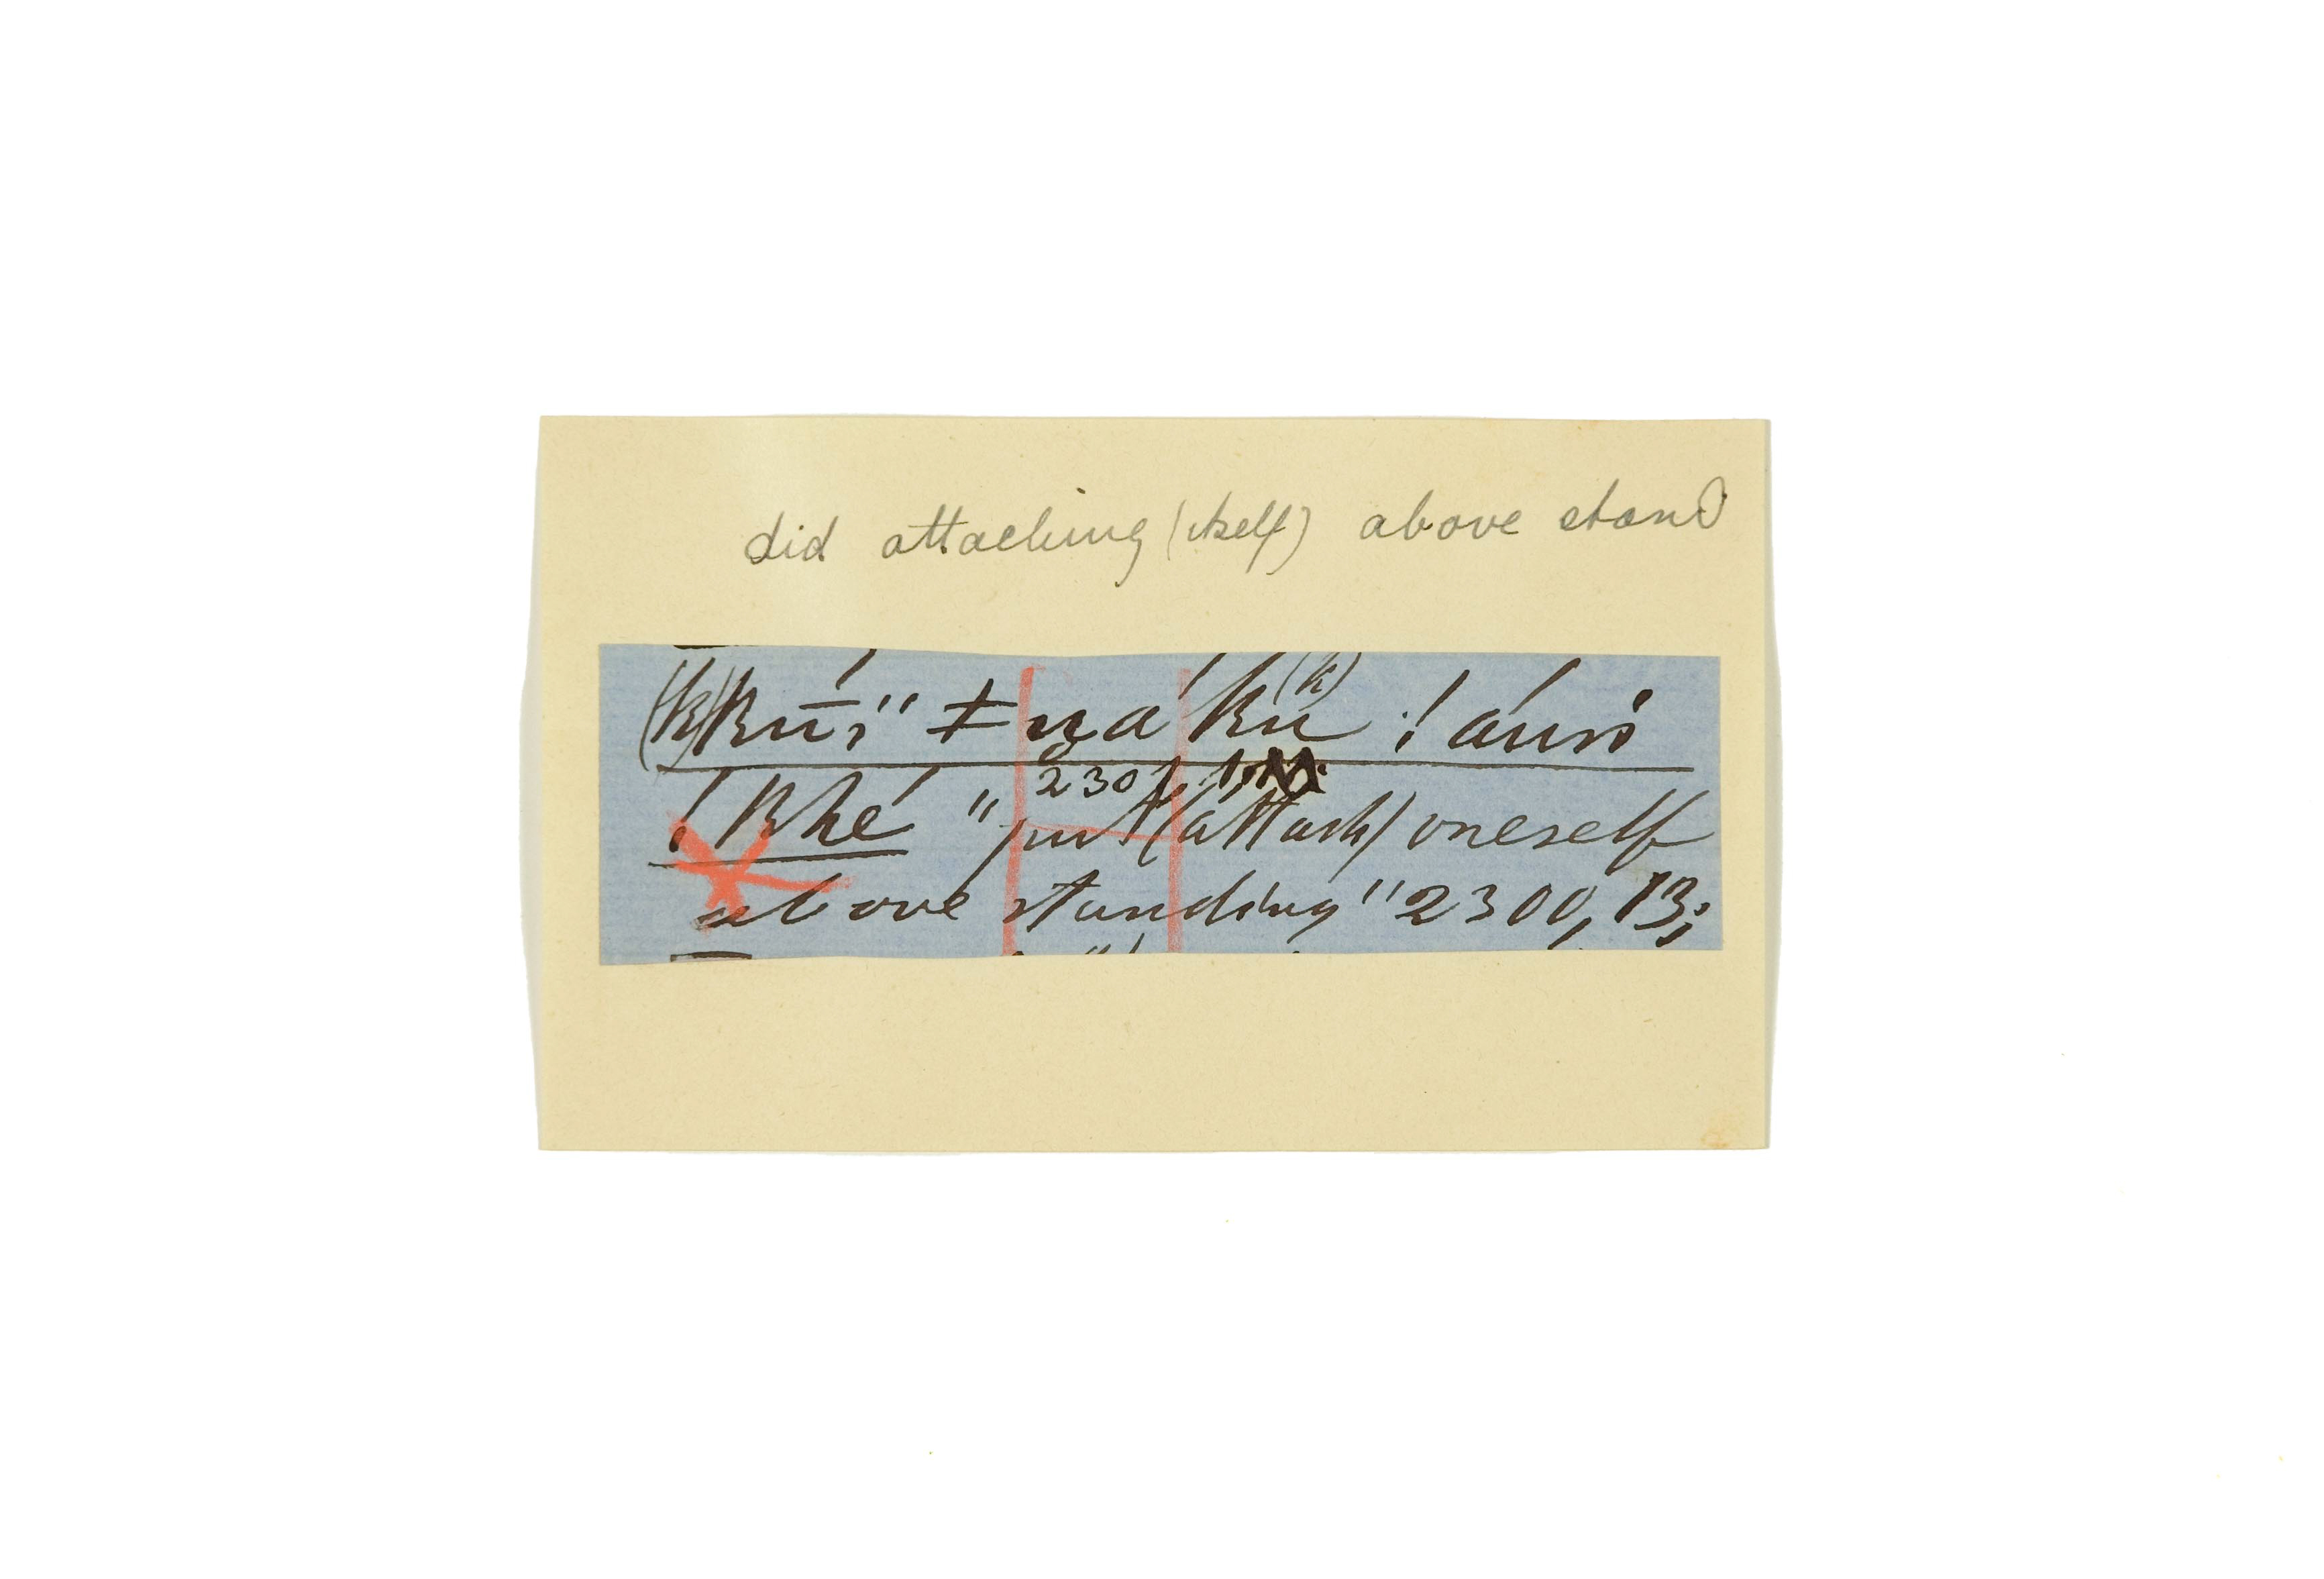 did attaching (itself) above stand
(k)kūi" ǂnákú(k) !áúnsi
2301
!khé "put (attach) oneself
above standing" 2300, 13;